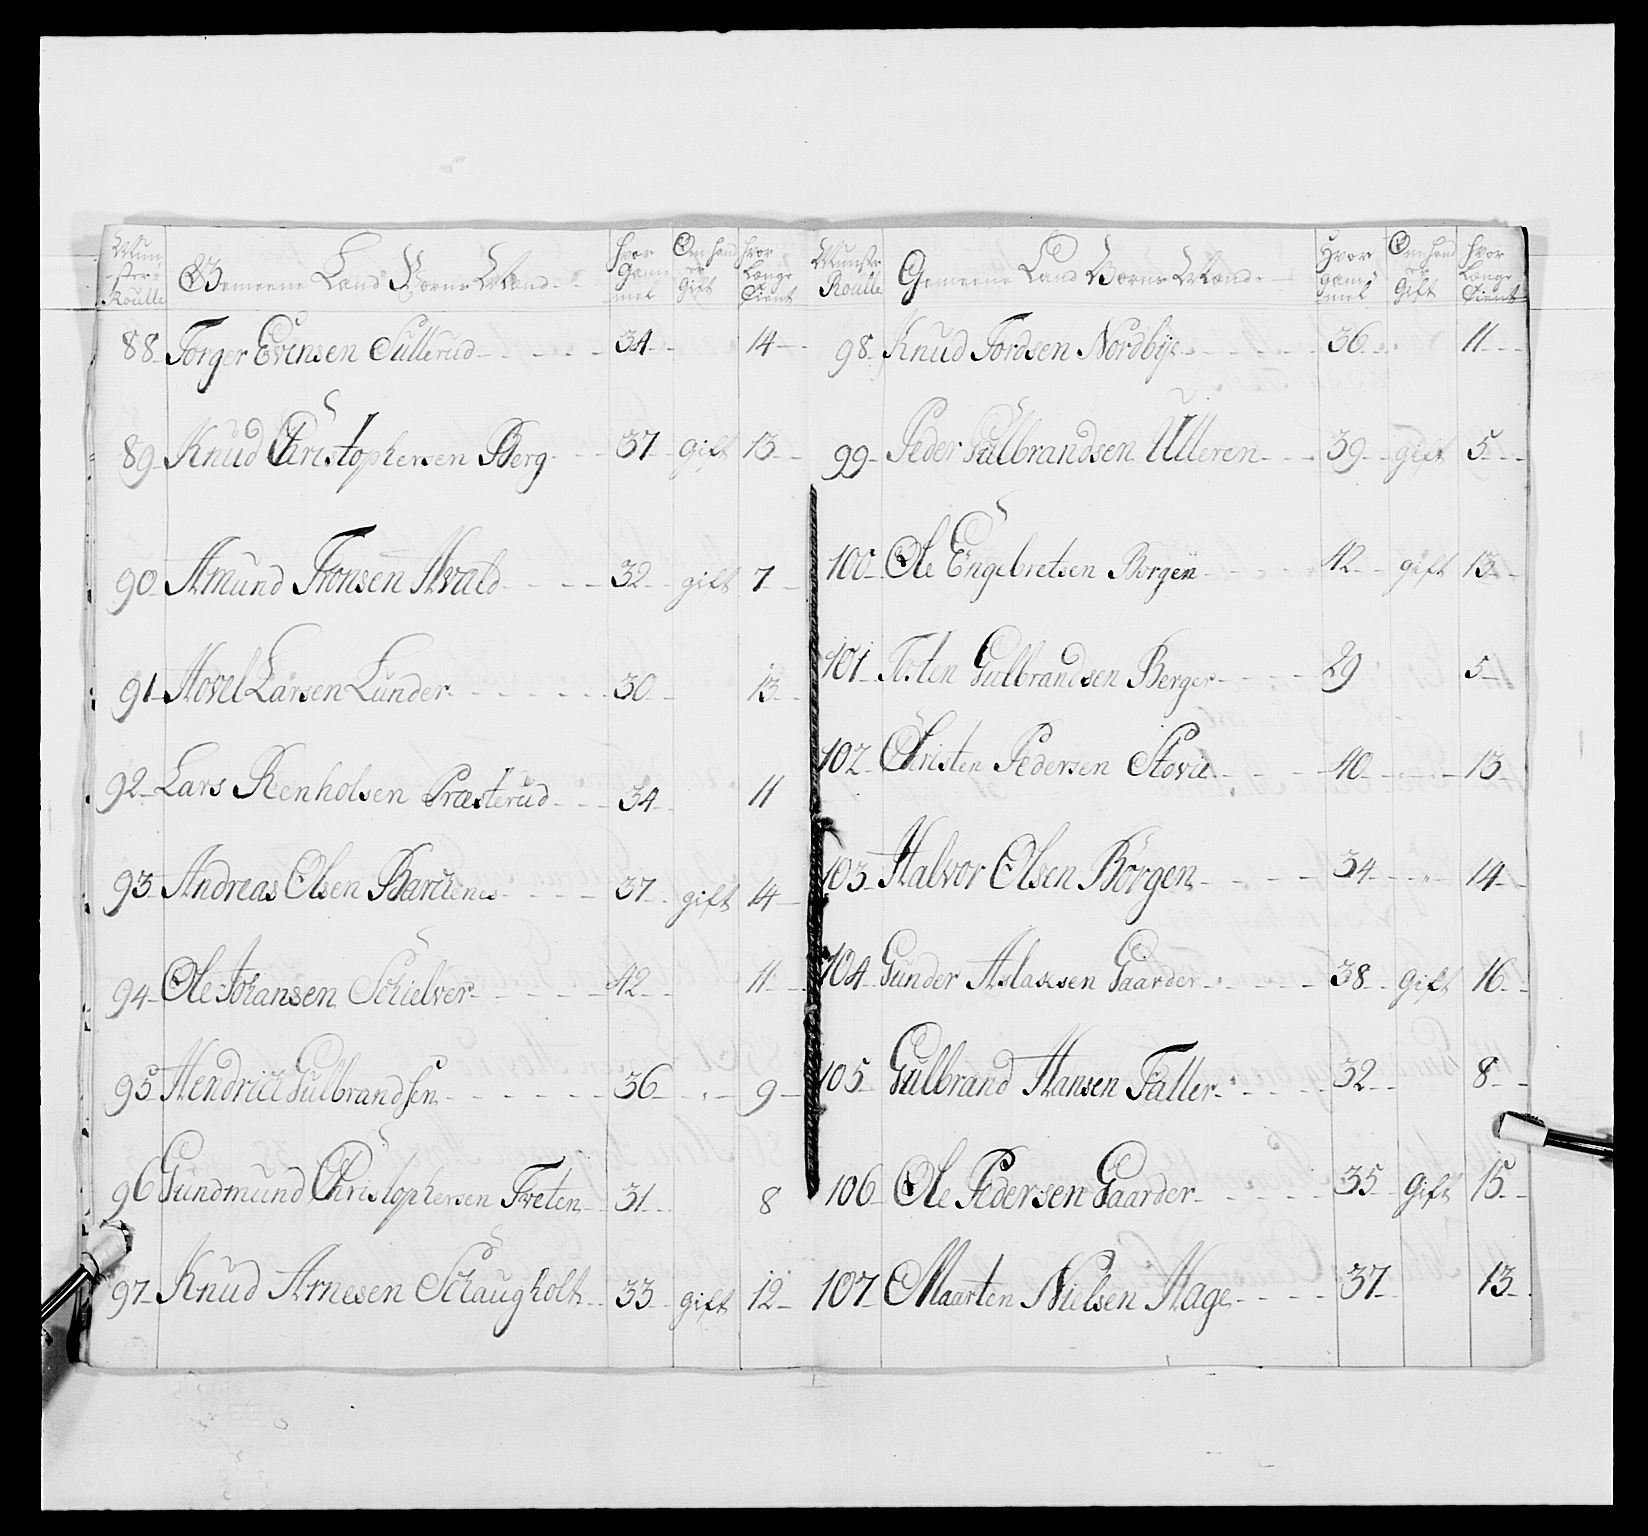 Mun-
ster
Roulle
Gemeene Land Værns Mænd
hvor
Gam-
mel
Om hand
er
Gift
hvor
Længe
Tient
88 Torger Evensen Sullerud 34 14
89 Knud Christophersen Berg 37 gift 13
90 Amund Tronsen Hvald 32 gift 7
91 Hovel Larsen Lunder 30 13
92 Lars Reenholsen Præsterud 34 11
93 Andreas Olsen Barchenes 37 gift 14
94 Ole Johansen Schielver 42 11
95 Hendrich Gulbrandsen 36 9
96 Gundmund Christophersen Tveten 31 8
97 Knud Arnesen Schaugholt 33 gift 12
Munster
Roulle
Gemeene Land Værns Mænd
Hvor
gam-
mel
Om hand
er
Gift
hvor
Længe
Tient
98 Knud Tordsen Nordbye 36 11
99 Peder Gulbrandsen Ulleren 39 gift 5
100 Ole Engebretsen Borgen 42 gift 13
101 Tosten Gulbrandsen Berger 29 5
102 Christen Pedersen Stovii 40 13
103 Halvor Olsen Börgen 34 14
104 Gunder Aslaksen Gaarder 38 Gift 16
105 Gulbrand Hansen Taller 32 8
106 Ole Pedersen Gaarder 35 Gift 15
107 Maarten Nielsen Hage 37 13